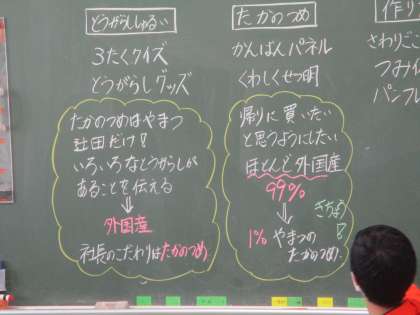 とうがらししゅるい
3たくクイズ
とうがらしグッズ
たかのつめはやまつ
辻田だけ!
いろいろなとうがらしが
あることを伝える
⇓
外国産
社長のこだわりはたかのつめ
たかのつめ
かんばんパネル
くわしくせつ明
帰りに買いたい
と思うようにしたい
ほとんど外国産
99%
⇓
きちょう!
1% やまつの
たかのつめ
作り
さわりごこ
つみイ
パンフレ